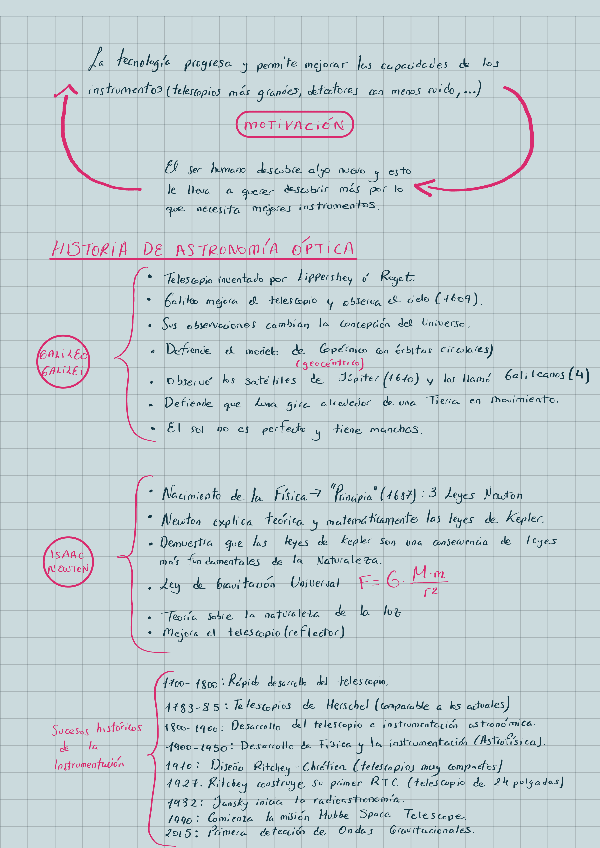 La tecnología progresa y permite mejorar las capacidades de los
instrumentos (telescopios más grandes, detectores con menos ruido, ...)
MOTIVACIÓN
El ser humano descubre algo nuevo y esto
le lleva a querer descubrir más por lo
que necesita mejores instrumentos.
HISTORIA DE ASTRONOMÍA ÓPTICA
GALILEO
GALILEI
• Telescopio inventado por Lippershey ó Roget.
• Galileo mejora el telescopio y observa el cielo (1609).
• Sus observaciones cambian la concepción del Universo.
• Defiende el modelo de Copérnico con órbitas circulares)
(geocéntrico)
• Observó los satélites de Júpiter (1610) y los llamó Galileanos (4)
• Defiende que Luna gira alrededor de una Tierra en movimiento.
• El sol no es perfecto y tiene manchas.
ISAAC
NEWTON
• Nacimiento de la Física → "Principia" (1687): 3 Leyes Newton
• Newton explica teórica y matemáticamente las leyes de Kepler.
• Demuestra que las leyes de Kepler son una consecuencia de leyes
más fundamentales de la Naturaleza.
• Ley de Gravitación Universal F = G · M·m / r²
• Teoría sobre la naturaleza de la luz
• Mejora el telescopio (reflector)
Sucesos históricos
de la
Instrumentación
1700-1800: Rápido desarrollo del telescopio.
1783-85: Telescopios de Herschel (comparable a los actuales)
1800-1900: Desarrollo del telescopio e instrumentación astronómica.
1900-1950: Desarrollo de Física y la instrumentación (Astrofísica).
1910: Diseño Ritchey-Chrétien (telescopios muy compactos)
1927: Ritchey construye su primer RTC (telescopio de 24 pulgadas)
1932: Jansky inicia la radioastronomía.
1990: Comienza la misión Hubbe Space Telescope.
2015: Primera detección de Ondas Gravitacionales.